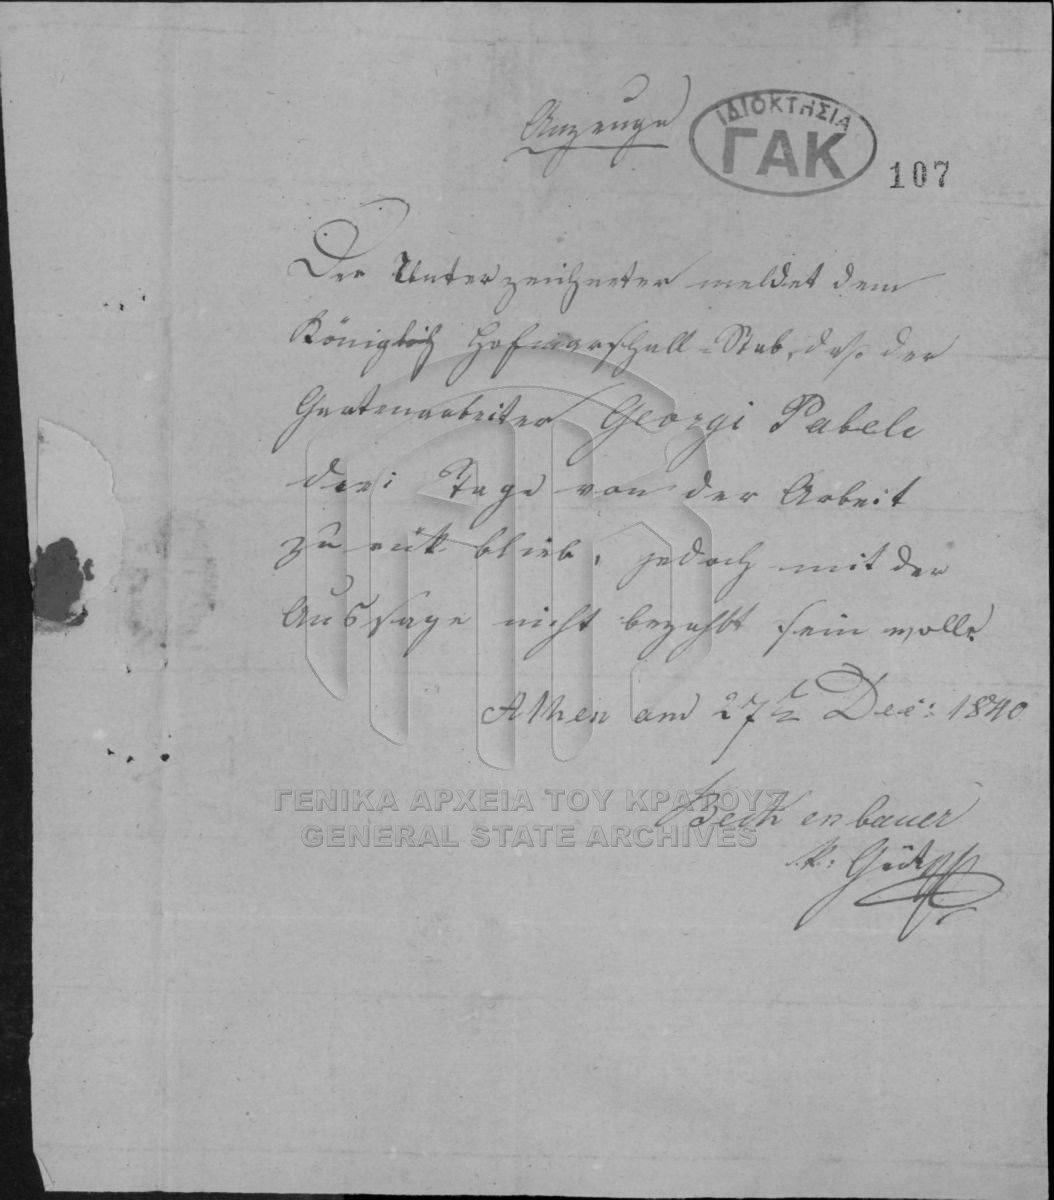 Anzeuge
ΙΔΙΟΚΤΗΣΙΑ
ΓΑΚ
107
Der Unterzeichneter meldet dem
Königlich Hofmarschall-Stab, daß der
Gartenarbeiter Georgi Pabele
drei Tage von der Arbeit
zurük blieb, jedoch mit der
Aussage nicht bezahlt sein wolle
Athen am 27t Dec: 1840
ΓΕΝΙΚΑ ΑΡΧΕΙΑ ΤΟΥ ΚΡΑΤΟΥΣ
GENERAL STATE ARCHIVES
Bethenbauer
k: